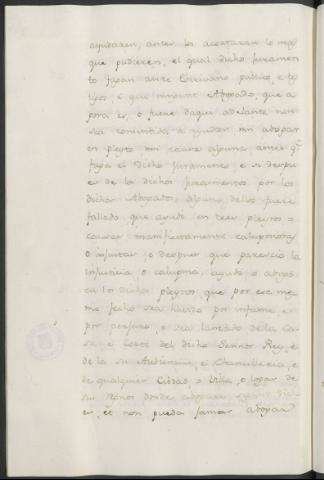 ayudaren, antes los acortaran lo mas
que pudieren, el qual dicho juramen
to fagan ante Escrivano publico, e tes
tigos, e que ninguno Abogado, que a
gora es, o fuere daqui adelante non
sea consentido a ayudar, nin abogar
en pleyto nin causa alguna antes qe
faga el dicho Juramento e si despu
es de los dichos juramentos por los
dichos Abogados, alguno dellos fuere
fallado que ayudó en tales pleytos o
causas manifiestamente calupniosas
o injustas, o despues que parescio la
injusticia o calupnia, ayudó o abogó
en los dichos pleytos que por ese mes
mo fecho sea havido por infame e
por perjuro, e sea lanzado de la Ca
sa, e Corte del dicho Sennor Rey, e
de la su Audiencia, e Chancilleria, e
de qualquier Cibdad, o Villa, o logar de
sus Reinos donde
es, et non pueda jamas abogar